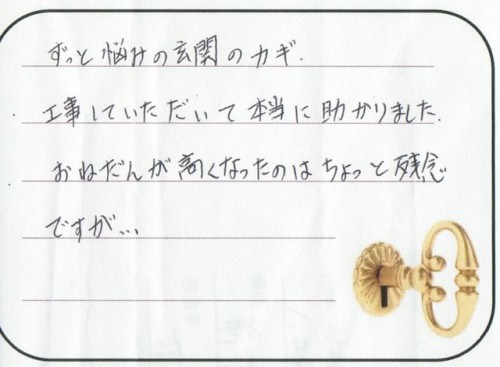 ずっと悩みの玄関のカギ.
工事していただいて本当に助かりました.
おねだんが高くなったのはちょっと残念
ですが...